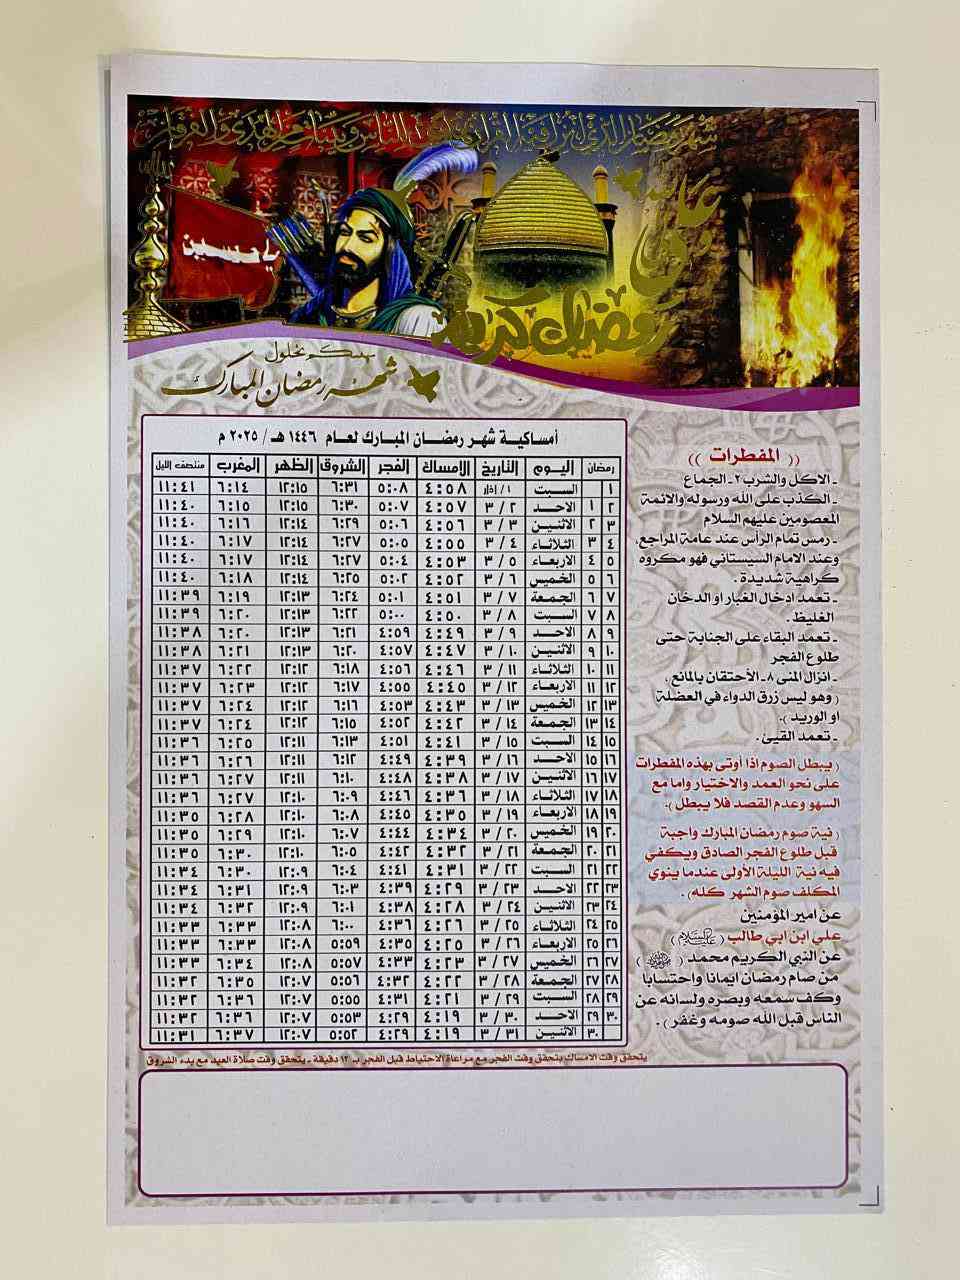 شهر رمضان الذي انزل فيه القرآن هدى للناس وبينات من الهدى والفرقان
يا حسين
رمضان كريم
نهنئكم بحلول
شهر رمضان المبارك
أمساكية شهر رمضان المبارك لعام ١٤٤٦ هـ / ٢٠٢٥ م
رمضان اليوم التاريخ الامساك الفجر الشروق الظهر المغرب منتصف الليل
١ السبت ١ / اذار ٤:٥٨ ٥:٠٨ ٦:٣١ ١٢:١٥ ٦:١٤ ١١:٤١
٢ ١ الاحد ٢ / ٣ ٤:٥٧ ٥:٠٧ ٦:٣٠ ١٢:١٥ ٦:١٥ ١١:٤٠
٣ ٢ الاثنين ٣ / ٣ ٤:٥٦ ٥:٠٦ ٦:٢٩ ١٢:١٤ ٦:١٦ ١١:٤٠
٤ ٣ الثلاثاء ٤ / ٣ ٤:٥٥ ٥:٠٥ ٦:٢٧ ١٢:١٤ ٦:١٧ ١١:٤٠
٥ ٤ الاربعاء ٥ / ٣ ٤:٥٣ ٥:٠٤ ٦:٢٧ ١٢:١٤ ٦:١٧ ١١:٤٠
٦ ٥ الخميس ٦ / ٣ ٤:٥٢ ٥:٠٢ ٦:٢٥ ١٢:١٤ ٦:١٨ ١١:٤٠
٧ ٦ الجمعة ٧ / ٣ ٤:٥١ ٥:٠١ ٦:٢٤ ١٢:١٣ ٦:١٩ ١١:٣٩
٨ ٧ السبت ٨ / ٣ ٤:٥٠ ٥:٠٠ ٦:٢٢ ١٢:١٣ ٦:٢٠ ١١:٣٩
٩ ٨ الاحد ٩ / ٣ ٤:٤٩ ٤:٥٩ ٦:٢١ ١٢:١٣ ٦:٢٠ ١١:٣٨
١٠ ٩ الاثنين ١٠ / ٣ ٤:٤٧ ٤:٥٧ ٦:٢٠ ١٢:١٣ ٦:٢١ ١١:٣٨
١١ ١٠ الثلاثاء ١١ / ٣ ٤:٤٦ ٤:٥٦ ٦:١٨ ١٢:١٢ ٦:٢٢ ١١:٣٧
١٢ ١١ الاربعاء ١٢ / ٣ ٤:٤٥ ٤:٥٥ ٦:١٧ ١٢:١٢ ٦:٢٣ ١١:٣٧
١٣ ١٢ الخميس ١٣ / ٣ ٤:٤٣ ٤:٥٣ ٦:١٦ ١٢:١٢ ٦:٢٤ ١١:٣٧
١٤ ١٣ الجمعة ١٤ / ٣ ٤:٤٢ ٤:٥٢ ٦:١٥ ١٢:١٢ ٦:٢٤ ١١:٣٧
١٥ ١٤ السبت ١٥ / ٣ ٤:٤١ ٤:٥١ ٦:١٣ ١٢:١١ ٦:٢٥ ١١:٣٦
١٦ ١٥ الاحد ١٦ / ٣ ٤:٣٩ ٤:٤٩ ٦:١٢ ١٢:١١ ٦:٢٦ ١١:٣٦
١٧ ١٦ الاثنين ١٧ / ٣ ٤:٣٨ ٤:٤٨ ٦:١٠ ١٢:١١ ٦:٢٧ ١١:٣٦
١٨ ١٧ الثلاثاء ١٨ / ٣ ٤:٣٦ ٤:٤٦ ٦:٠٩ ١٢:١٠ ٦:٢٧ ١١:٣٦
١٩ ١٨ الاربعاء ١٩ / ٣ ٤:٣٥ ٤:٤٥ ٦:٠٨ ١٢:١٠ ٦:٢٨ ١١:٣٥
٢٠ ١٩ الخميس ٢٠ / ٣ ٤:٣٤ ٤:٤٤ ٦:٠٧ ١٢:١٠ ٦:٢٩ ١١:٣٥
٢١ ٢٠ الجمعة ٢١ / ٣ ٤:٣٢ ٤:٤٢ ٦:٠٥ ١٢:١٠ ٦:٣٠ ١١:٣٥
٢٢ ٢١ السبت ٢٢ / ٣ ٤:٣١ ٤:٤١ ٦:٠٤ ١٢:٠٩ ٦:٣٠ ١١:٣٤
٢٣ ٢٢ الاحد ٢٣ / ٣ ٤:٢٩ ٤:٣٩ ٦:٠٣ ١٢:٠٩ ٦:٣١ ١١:٣٤
٢٤ ٢٣ الاثنين ٢٤ / ٣ ٤:٢٨ ٤:٣٨ ٦:٠١ ١٢:٠٩ ٦:٣٢ ١١:٣٤
٢٥ ٢٤ الثلاثاء ٢٥ / ٣ ٤:٢٦ ٤:٣٦ ٦:٠٠ ١٢:٠٨ ٦:٣٣ ١١:٣٣
٢٦ ٢٥ الاربعاء ٢٦ / ٣ ٤:٢٥ ٤:٣٥ ٥:٥٩ ١٢:٠٨ ٦:٣٣ ١١:٣٣
٢٧ ٢٦ الخميس ٢٧ / ٣ ٤:٢٣ ٤:٣٣ ٥:٥٧ ١٢:٠٨ ٦:٣٤ ١١:٣٣
٢٨ ٢٧ الجمعة ٢٨ / ٣ ٤:٢٢ ٤:٣٢ ٥:٥٦ ١٢:٠٧ ٦:٣٥ ١١:٣٢
٢٩ ٢٨ السبت ٢٩ / ٣ ٤:٢١ ٤:٣١ ٥:٥٥ ١٢:٠٧ ٦:٣٦ ١١:٣٢
٣٠ ٢٩ الاحد ٣٠ / ٣ ٤:١٩ ٤:٢٩ ٥:٥٣ ١٢:٠٧ ٦:٣٦ ١١:٣٢
٣٠ الاثنين ٣١ / ٣ ٤:١٩ ٤:٢٩ ٥:٥٢ ١٢:٠٧ ٦:٣٧ ١١:٣١
(( المفطرات ))
ـ الاكل والشرب ٢ـ الجماع
ـ الكذب على الله ورسوله والائمة
المعصومين عليهم السلام
ـ رمس تمام الرأس عند عامة المراجع
وعند الامام السيستاني فهو مكروه
كراهية شديدة .
ـ تعمد ادخال الغبار او الدخان
الغليظ .
ـ تعمد البقاء على الجنابة حتى
طلوع الفجر
ـ انزال المنى ٨ـ الأحتقان بالمانع .
( وهو ليس زرق الدواء في العضلة
او الوريد ) .
ـ تعمد القيئ .
( يبطل الصوم اذا أوتى بهذه المفطرات
على نحو العمد والاختيار واما مع
السهو وعدم القصد فلا يبطل ) .
( نية صوم رمضان المبارك واجبة
قبل طلوع الفجر الصادق ويكفي
فيه نية الليلة الأولى عندما ينوي
المكلف صوم الشهر كله ) .
عن امير المؤمنين
علي ابن ابي طالب (عليه السلام)
عن النبي الكريم محمد (ﷺ)
( من صام رمضان ايمانا واحتسابا
وكف سمعه وبصره ولسانه عن
الناس قبل الله صومه وغفر ) .
يتحقق وقت الامساك بتحقق وقت الفجر مع مراعاة الاحتياط قبل الفجر بـ ١٢ دقيقة ـ يتحقق وقت صلاة العيد مع بدء الشروق